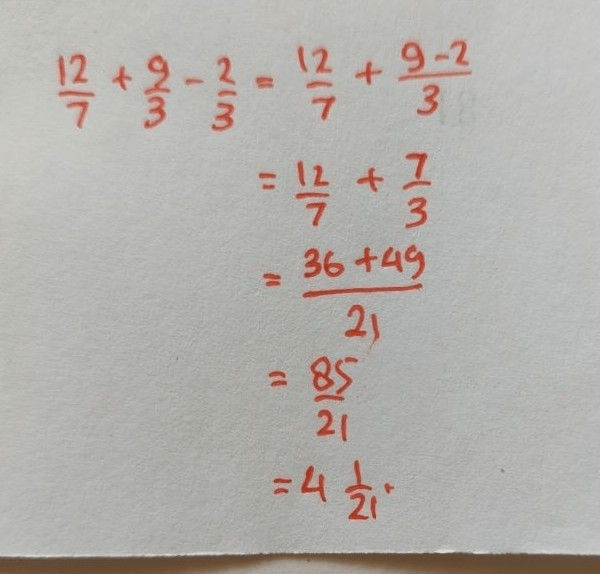 12/7 + 9/3 - 2/3 = 12/7 + (9-2)/3
= 12/7 + 7/3
= (36+49)/21
= 85/21
= 4 1/21.